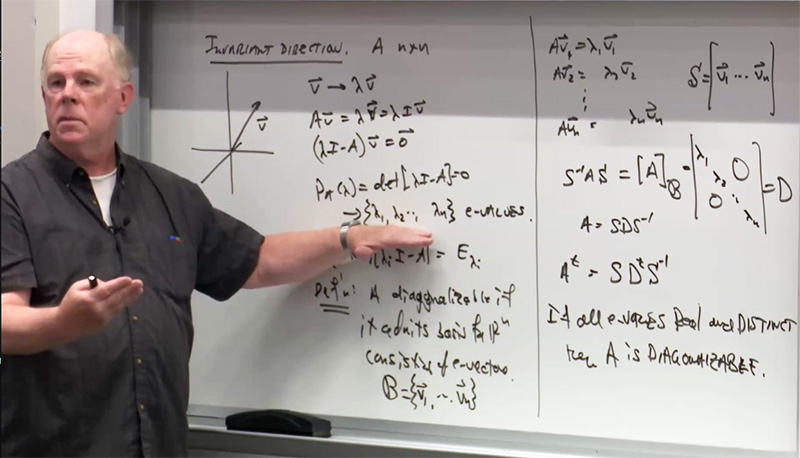 INVARIANT DIRECTION. A n×n
v⃗ → λv⃗
v⃗
Av⃗ = λv⃗ = λIv⃗
(λI-A)v⃗ = 0⃗
P_A(λ) = det[λI-A] = 0
→ {λ₁, λ₂ ··, λₙ} e-VALUES.
[λᵢI-A] = E_λᵢ
Def'n: A diagonalizable if
it admits basis for ℝⁿ
consisting of e-vectors.
B = {v⃗₁, ··· v⃗ₙ}
Av⃗₁ = λ₁v⃗₁
Av⃗₂ = λ₂v⃗₂
⋮
Av⃗ₙ = λₙv⃗ₙ
S = [v⃗₁ ··· v⃗ₙ]
S⁻¹AS = [A]_B = [λ₁ λ₂ ⋱ λₙ 0 0] = D
A = SDS⁻¹
Aᵗ = SDᵗS⁻¹
If all e-VALUES Real and DISTINCT
then A is DIAGONALIZABLE.